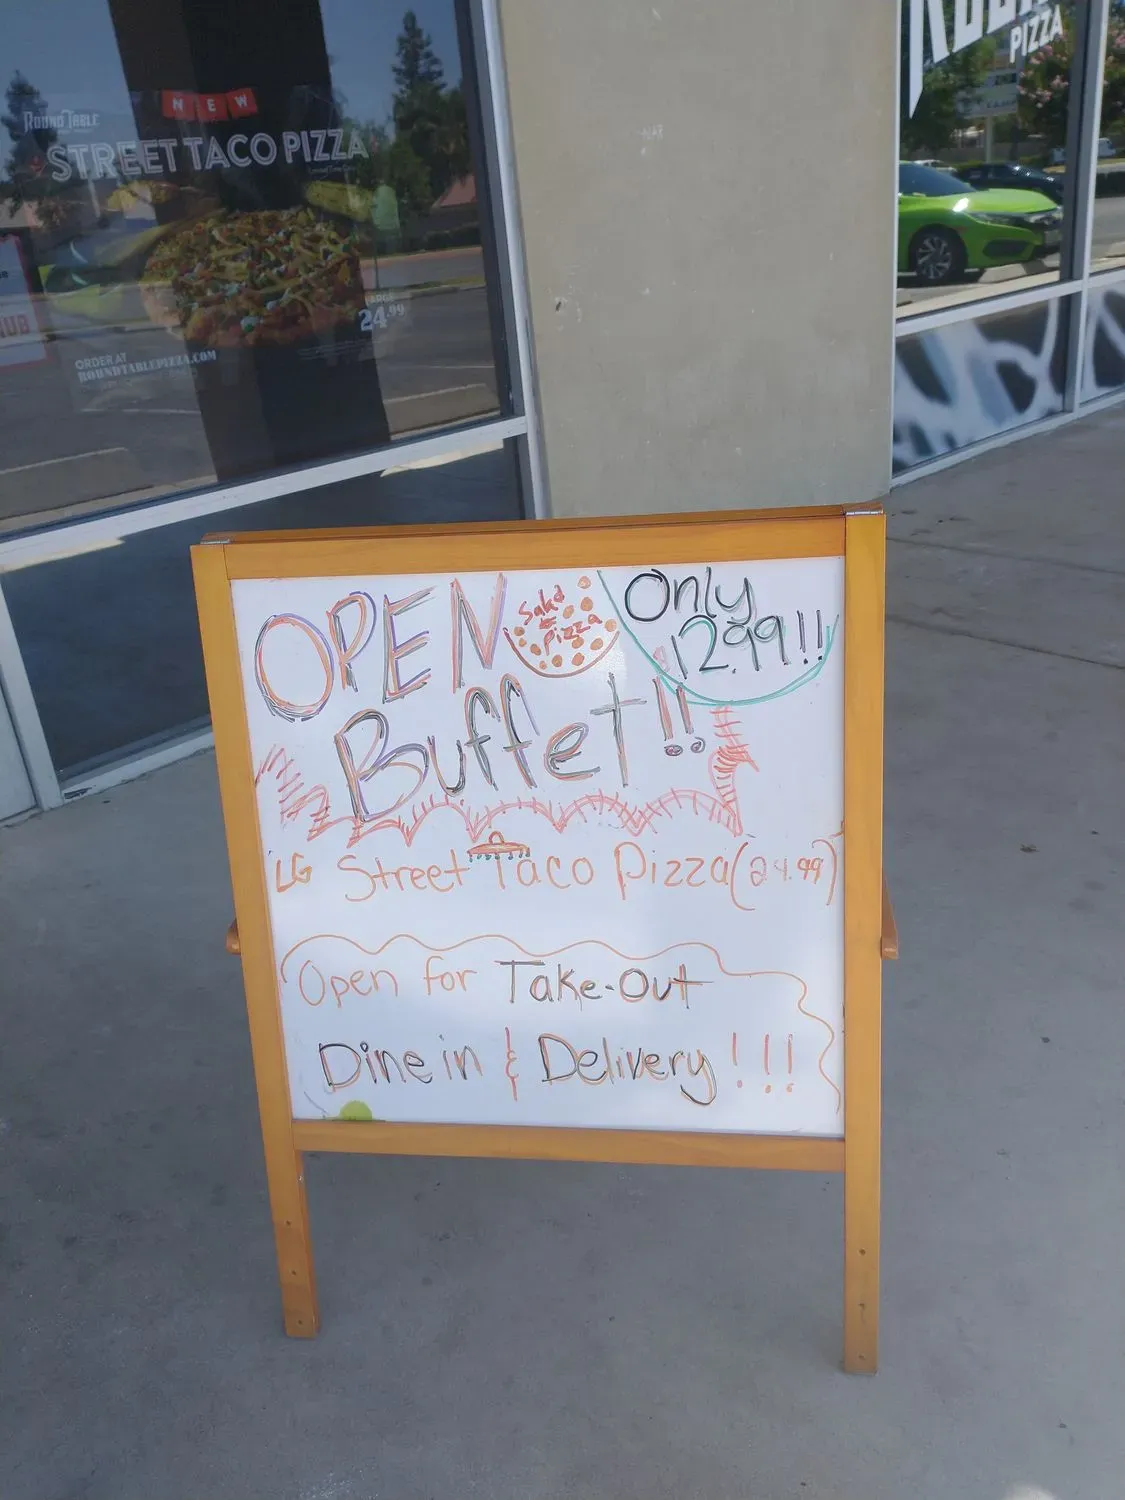 NEW
ROUND TABLE
STREET TACO PIZZA
LARGE
24.99
ORDER AT
ROUNDTABLEPIZZA.COM
PIZZA
OPEN
Salad
&
Pizza
Only
12.99!!
Buffet!!
LG Street Taco Pizza (24.99)
Open for Take-Out
Dine in & Delivery!!!